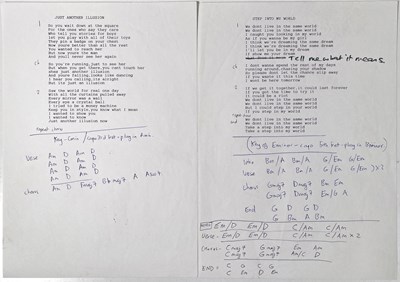 JUST ANOTHER ILLUSION
1 Do you wait down at the square
For the ones who say they care
Who tell you stories for boys
Let you play with all of their toys
Pin a badge on your chest
Now you're better than all the rest
You wanted to reach her
But now you're the man
And you'll never see her again
So you're running just to see her
But when you get there you can't touch her
Just another
And you're falling
I hear you calling it's
But it's just an illusion
2 Now the world for real one day
With all the curtains pulled away
Every mirror was a wall
Every eye a crystal ball
I tried to be a money machine
Keep you in style you know what I mean
I wanted to show you
I wanted to know
Just another illusion now
Repeat chorus
Verse Am D Am D
Am D Am D
Am D Am D
Am D Am D
Chorus Am D
STEP INTO MY WORLD
1 We dont live in the same world
We dont live in the same world
I caught you looking in my world
As if you wanna be my girl
I think we're dreaming the same dream
I think we're dreaming the same dream
I'll let you be in my dream
If you show me what it means
Tell me what it means
I dont wanna spend the rest of my days
Running around, chasing your shadow
So please dont let the chance slip away
If you wanna it this time
I wont be here tomorrow
2 If we get it together, it could last forever
If you got the time to try it
It could be a riot
But we dont live in the same world
We dont live in the same world
But I could step in your world
If you step in my world
We dont live in the same world
We dont live in the same world
Take a step into my world
Take a step into my world
Verse Bm/A Bm/A G/Em G/Em
Verse Bm/A Bm/A G/Em G/Em ) x2
Chorus Gmaj7 Dmaj7 Bm Em
Gmaj7 Dmaj7 Em/G A
End G D G D
G Bm A Bm
Em/D Em/D C/Am C/Am
Verse - Em/D Em/D C/Am C/Am x2
Chorus - Cmaj7 Gmaj7 Em Am
Cmaj7 Gmaj7 Am/C D
END = C G C G
C Em D Em